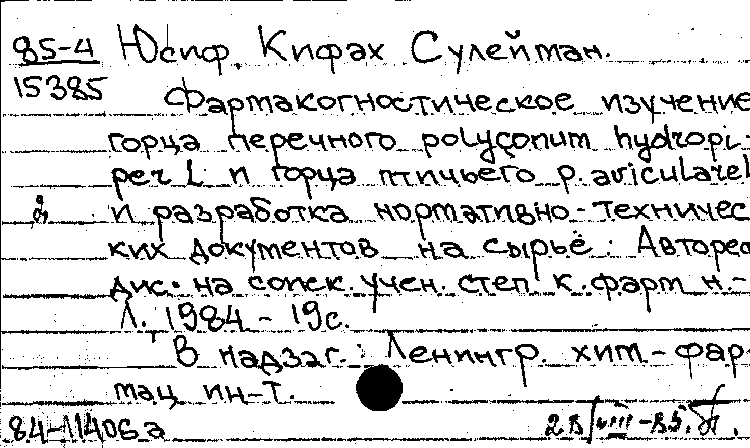 85-4 Юсиф, Кифах Сулейман.
15385
Фармакогностическое изучение
горца перечного polygonum hydropi-
per L и горца птичьего p. aviculareL
и разработка нормативно-техничес
ких документов на сырьё: Авторе
дис. на соиск. учен. степ. к. фарм н.-
Л., 1984 - 19с.
В надзаг.: Ленингр. хим-фар-
мац ин-т.
84-11406а